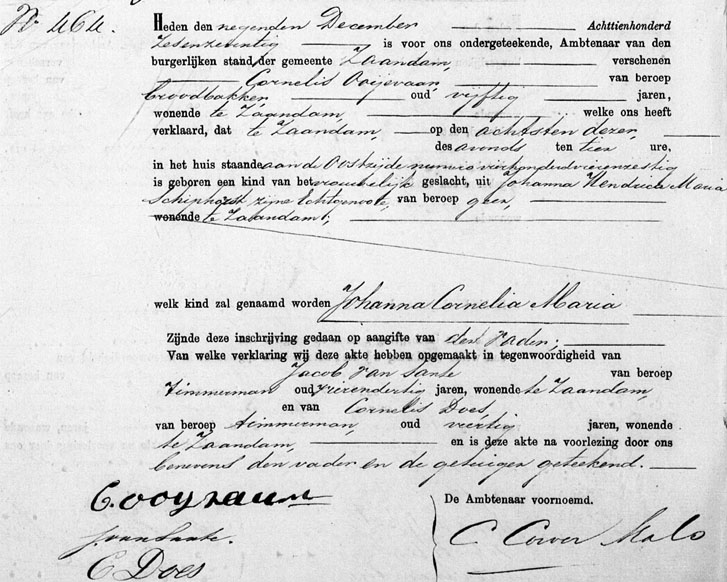 No 464.
Heden den negenden December Achttienhonderd
zesenzeventig is voor ons ondergeteekende, Ambtenaar van den
burgerlijken stand der gemeente Zaandam, verschenen
Cornelis Ooijevaar, van beroep
broodbakker oud vijftig jaren,
wonende te Zaandam, welke ons heeft
verklaard, dat te Zaandam op den achtsten dezer,
des avonds ten tien ure,
in het huis staande aan de Oostzijde numero vierhonderdvierenzestig
is geboren een kind van het vrouwelijk geslacht, uit Johanna Hendrica Maria
Schiphorst zijne Echtgenoote, van beroep geen,
wonende te Zaandam;
welk kind zal genaamd worden Johanna Cornelia Maria
Zijnde deze inschrijving gedaan op aangifte van den vader;
Van welke verklaring wij deze akte hebben opgemaakt in tegenwoordigheid van
Jacob van Sante van beroep
timmerman oud vierendertig jaren, wonende te Zaandam,
en van Cornelis Does,
van beroep timmerman, oud veertig jaren, wonende
te Zaandam, en is deze akte na voorlezing door ons
benevens den vader en de getuigen geteekend.
C. ooyevaar
De Ambtenaar voornoemd.
J. van Sante.
C Corver Malo
C Does